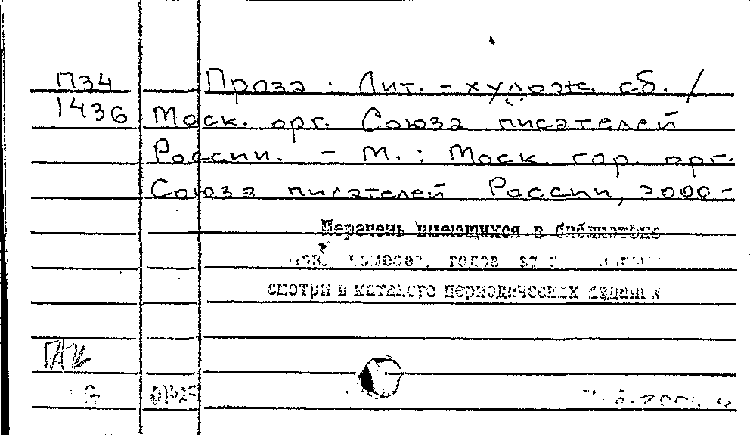 П34 Проза : Лит. - худож. сб. /
1436 Моск. орг. Союза писателей
России. - М. : Моск гор. орг.
Союза писателей России, 2000-
Перечень имеющихся в библиотеке
номеров, годов
смотри в каталоге периодических изданий